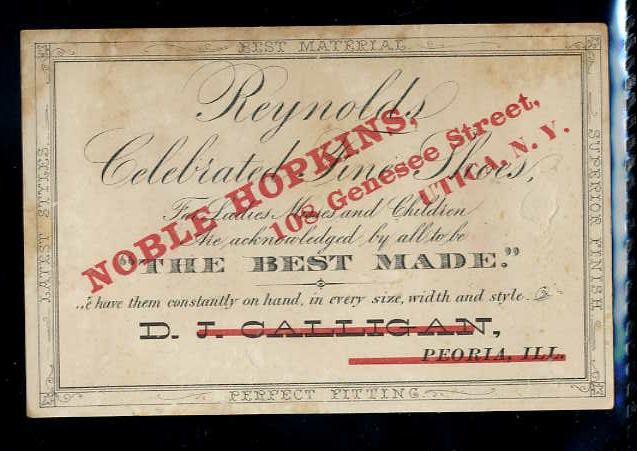 BEST MATERIAL
LATEST STYLES
SUPERIOR FINISH
Reynolds
Celebrated Fine Shoes,
For Ladies Misses and Children
Are acknowledged by all to be
"THE BEST MADE."
We have them constantly on hand, in every size, width and style.
D. J. CALLIGAN,
PEORIA, ILL.
PERFECT FITTING
NOBLE HOPKINS,
108 Genesee Street,
UTICA, N. Y.